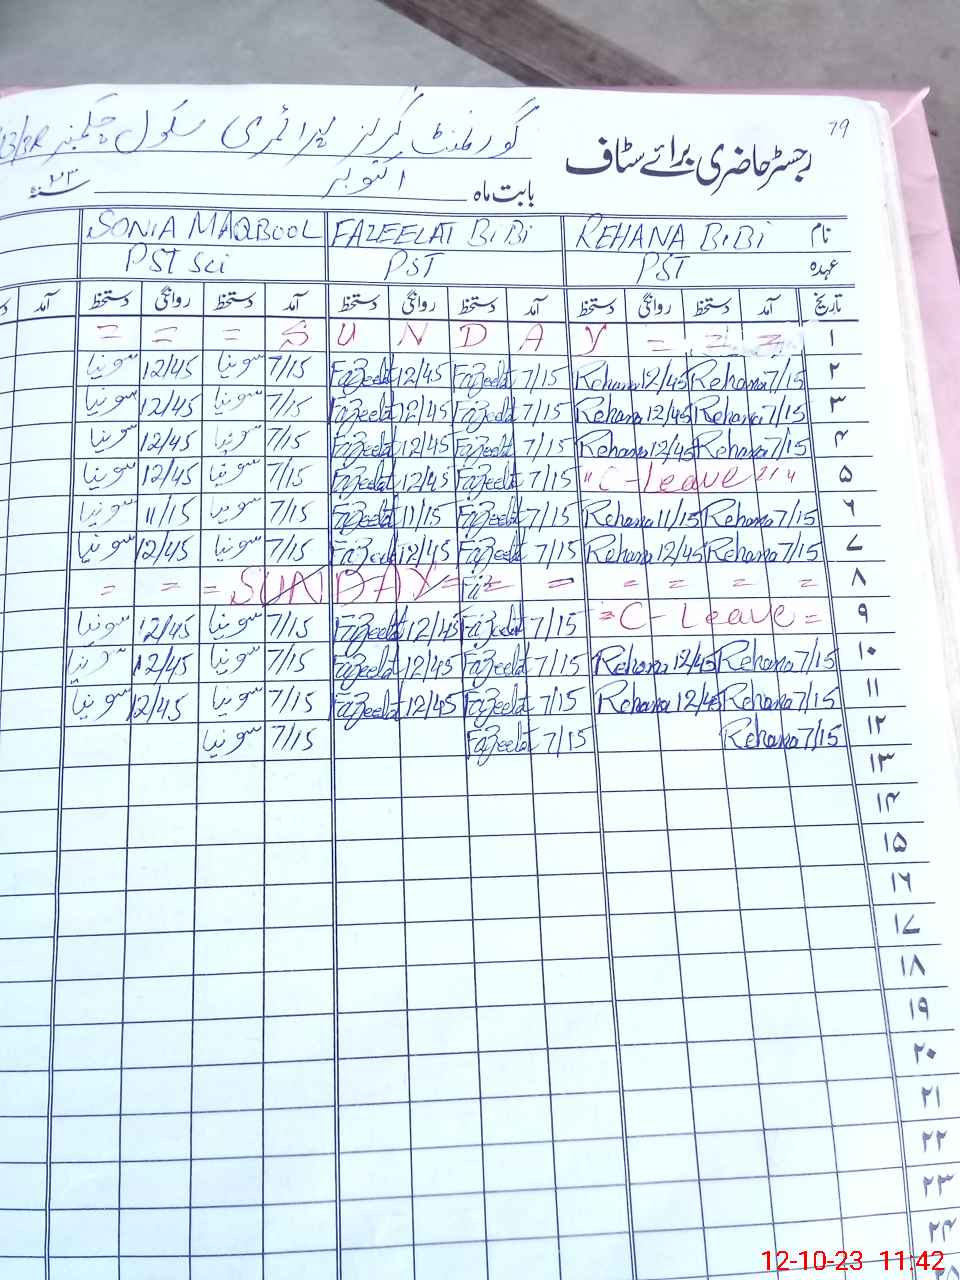 79
رجسٹر حاضری برائے سٹاف
گورنمنٹ گرلز پرائمری سکول چکنمبر
بابت ماہ اکتوبر ۲۳ سنہ
نام REHANA BiBi FAZEELAT BiBi SONIA MAQBOOL
عہدہ PST PST PST Sci
تاریخ آمد دستخط روانگی دستخط آمد دستخط روانگی دستخط آمد دستخط روانگی دستخط آمد
۱ = = = S U N D A Y = = =
۲ 7/15 Rehana 12/45 Rehana 7/15 Fazeelat 12/45 Fazeelat 7/15 سونیا 12/45 سونیا
۳ 7/15 Rehana 12/45 Rehana 7/15 Fazeelat 12/45 Fazeelat 7/15 سونیا 12/45 سونیا
۴ 7/15 Rehana 12/45 Rehana 7/15 Fazeelat 12/45 Fazeelat 7/15 سونیا 12/45 سونیا
۵ " C-Leave " " 7/15 Fazeelat 12/45 Fazeelat 7/15 سونیا 12/45 سونیا
۶ 7/15 Rehana 11/15 Rehana 7/15 Fazeelat 11/15 Fazeelat 7/15 سونیا 11/15 سونیا
۷ 7/15 Rehana 12/45 Rehana 7/15 Fazeelat 12/45 Fazeelat 7/15 سونیا 12/45 سونیا
۸ = = = SUNDAY = = = = = = =
۹ = C-Leave = 7/15 Fazeelat 12/45 Fazeelat 7/15 سونیا 12/45 سونیا
۱۰ 7/15 Rehana 12/45 Rehana 7/15 Fazeelat 12/45 Fazeelat 7/15 سونیا 12/45 سونیا
۱۱ 7/15 Rehana 12/45 Rehana 7/15 Fazeelat 12/45 Fazeelat 7/15 سونیا 12/45 سونیا
۱۲ 7/15 Rehana 7/15 Fazeelat 7/15 سونیا
۱۳
۱۴
۱۵
۱۶
۱۷
۱۸
۱۹
۲۰
۲۱
۲۲
۲۳
۲۴
۲۵
12-10-23 11:42